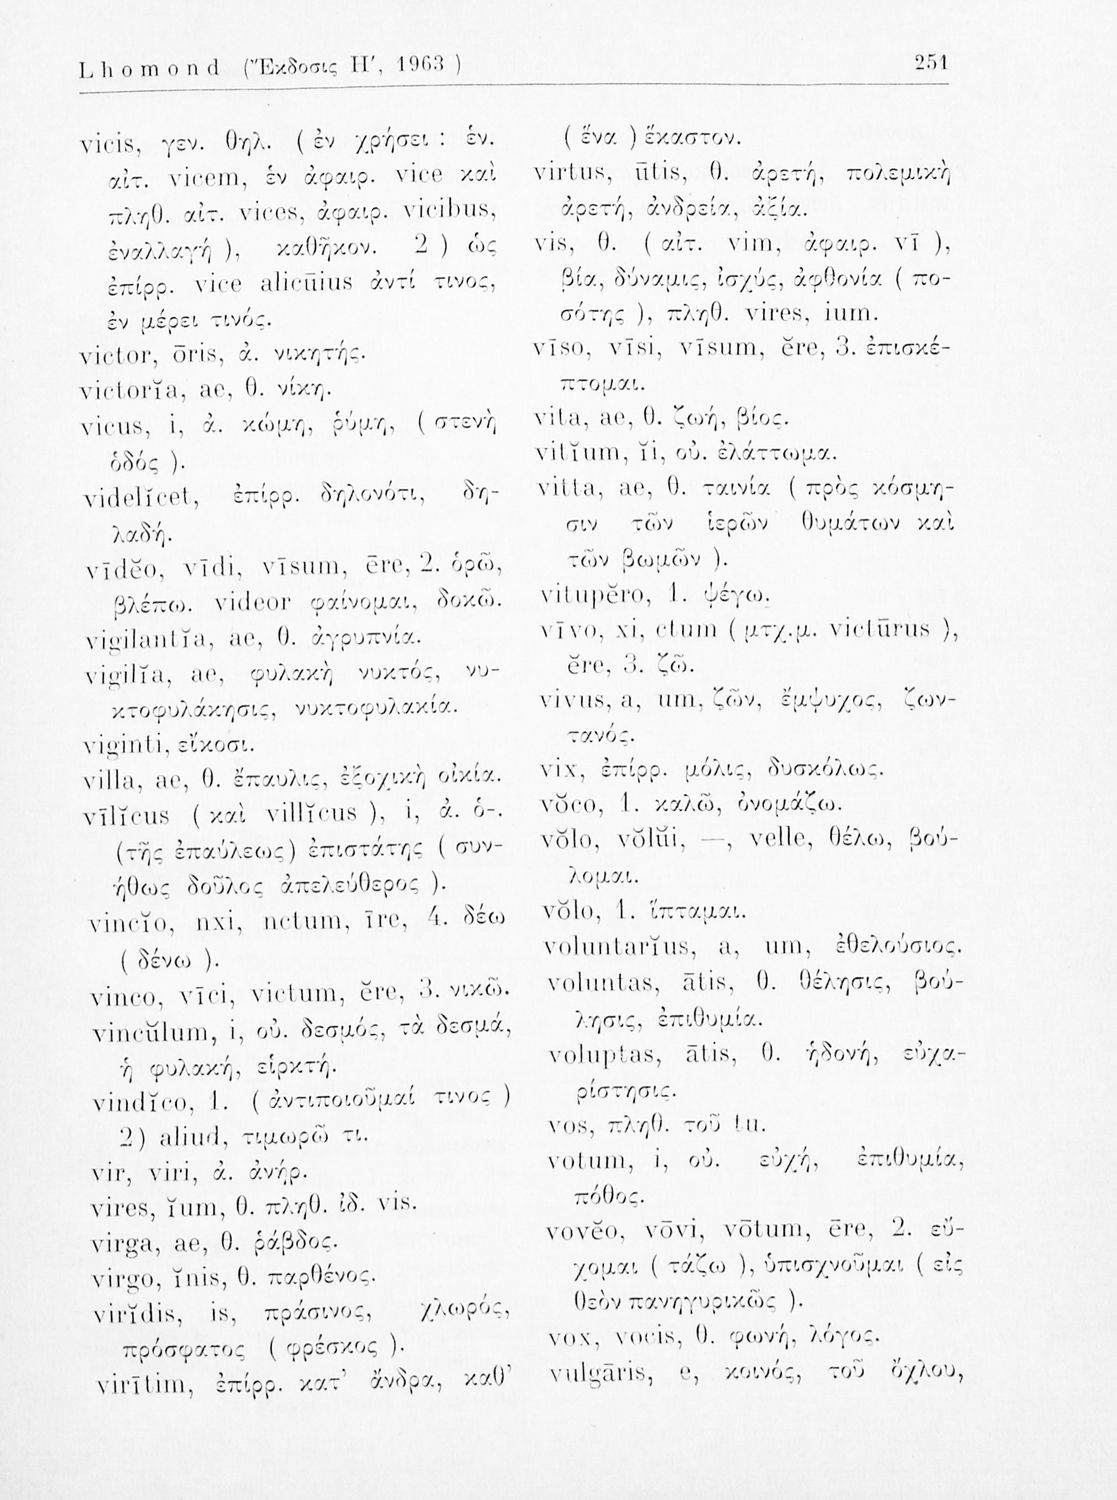 Lhomond (Ἔκδοσις Η′, 1963 )
251
vicis, γεν. θηλ. ( ἐν χρήσει : ἑν.
αἰτ. vicem, ἑν ἀφαιρ. vice καὶ
πληθ. αἰτ. vices, ἀφαιρ. vicibus,
ἐναλλαγή ), καθῆκον. 2 ) ὡς
ἐπίρρ. vice alicūius ἀντί τινος,
ἐν μέρει τινός.
victor, ōris, ἀ. νικητής.
victorĭa, ae, θ. νίκη.
vicus, i, ἀ. κώμη, ῥύμη, ( στενὴ
ὁδός ).
videlĭcet, ἐπίρρ. δηλονότι, δη-
λαδή.
vīdĕo, vīdi, vīsum, ēre, 2. ὁρῶ,
βλέπω. videor φαίνομαι, δοκῶ.
vigilantĭa, ae, θ. ἀγρυπνία.
vigilĭa, ae, φυλακὴ νυκτός, νυ-
κτοφυλάκησις, νυκτοφυλακία.
viginti, εἴκοσι.
villa, ae, θ. ἔπαυλις, ἐξοχικὴ οἰκία.
vīlĭcus ( καὶ villĭcus ), i, ἀ. ὁ-.
(τῆς ἐπαύλεως) ἐπιστάτης ( συν-
ήθως δοῦλος ἀπελεύθερος ).
vincĭo, nxi, nctum, īre, 4. δέω
( δένω ).
vinco, vīci, victum, ĕre, 3. νικῶ.
vincŭlum, i, οὐ. δεσμός, τὰ δεσμά,
ἡ φυλακή, εἱρκτή.
vindĭco, 1. ( ἀντιποιοῦμαί τινος )
2) aliud, τιμωρῶ τι.
vir, viri, ἀ. ἀνήρ.
vires, ĭum, θ. πληθ. ἰδ. vis.
virga, ae, θ. ῥάβδος.
virgo, ĭnis, θ. παρθένος.
virĭdis, is, πράσινος, χλωρός,
πρόσφατος ( φρέσκος ).
virītim, ἐπίρρ. κατ᾽ ἄνδρα, καθ᾽
( ἕνα ) ἕκαστον.
virtus, ūtis, θ. ἀρετή, πολεμικὴ
ἀρετή, ἀνδρεία, ἀξία.
vis, θ. ( αἰτ. vim, ἀφαιρ. vī ),
βία, δύναμις, ἰσχύς, ἀφθονία ( πο-
σότης ), πληθ. vires, ium.
vīso, vīsi, vīsum, ĕre, 3. ἐπισκέ-
πτομαι.
vita, ae, θ. ζωή, βίος.
vitĭum, ĭi, οὐ. ἐλάττωμα.
vitta, ae, θ. ταινία ( πρὸς κόσμη-
σιν τῶν ἱερῶν θυμάτων καὶ
τῶν βωμῶν ).
vitupĕro, 1. ψέγω.
vīvo, xi, ctum ( μτχ.μ. victūrus ),
ĕre, 3. ζῶ.
vivus, a, um, ζῶν, ἔμψυχος, ζων-
τανός.
vix, ἐπίρρ. μόλις, δυσκόλως.
vŏco, 1. καλῶ, ὀνομάζω.
vŏlo, vŏlŭi, —, velle, θέλω, βού-
λομαι.
vŏlo, 1. ἵπταμαι.
voluntarĭus, a, um, ἐθελούσιος.
voluntas, ātis, θ. θέλησις, βού-
λησις, ἐπιθυμία.
voluptas, ātis, θ. ἡδονή, εὐχα-
ρίστησις.
vos, πληθ. τοῦ tu.
votum, i, οὐ. εὐχή, ἐπιθυμία,
πόθος.
vovĕo, vōvi, vōtum, ēre, 2. εὔ-
χομαι ( τάζω ), ὑπισχνοῦμαι ( εἰς
θεὸν πανηγυρικῶς ).
vox, vocis, θ. φωνή, λόγος.
vulgāris, e, κοινός, τοῦ ὄχλου,